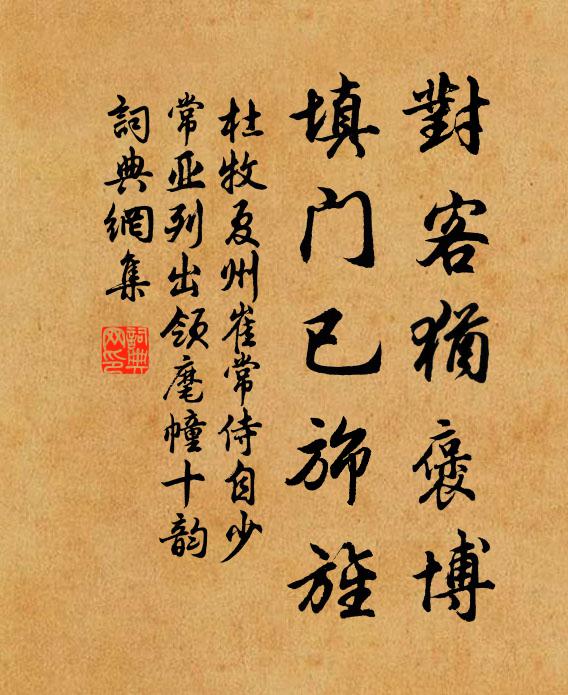 對客猶褒博
填门已旆旌
杜牧夏州崔常侍自少
常亚列出领麾幢十韵
詞典網集
詞典网印